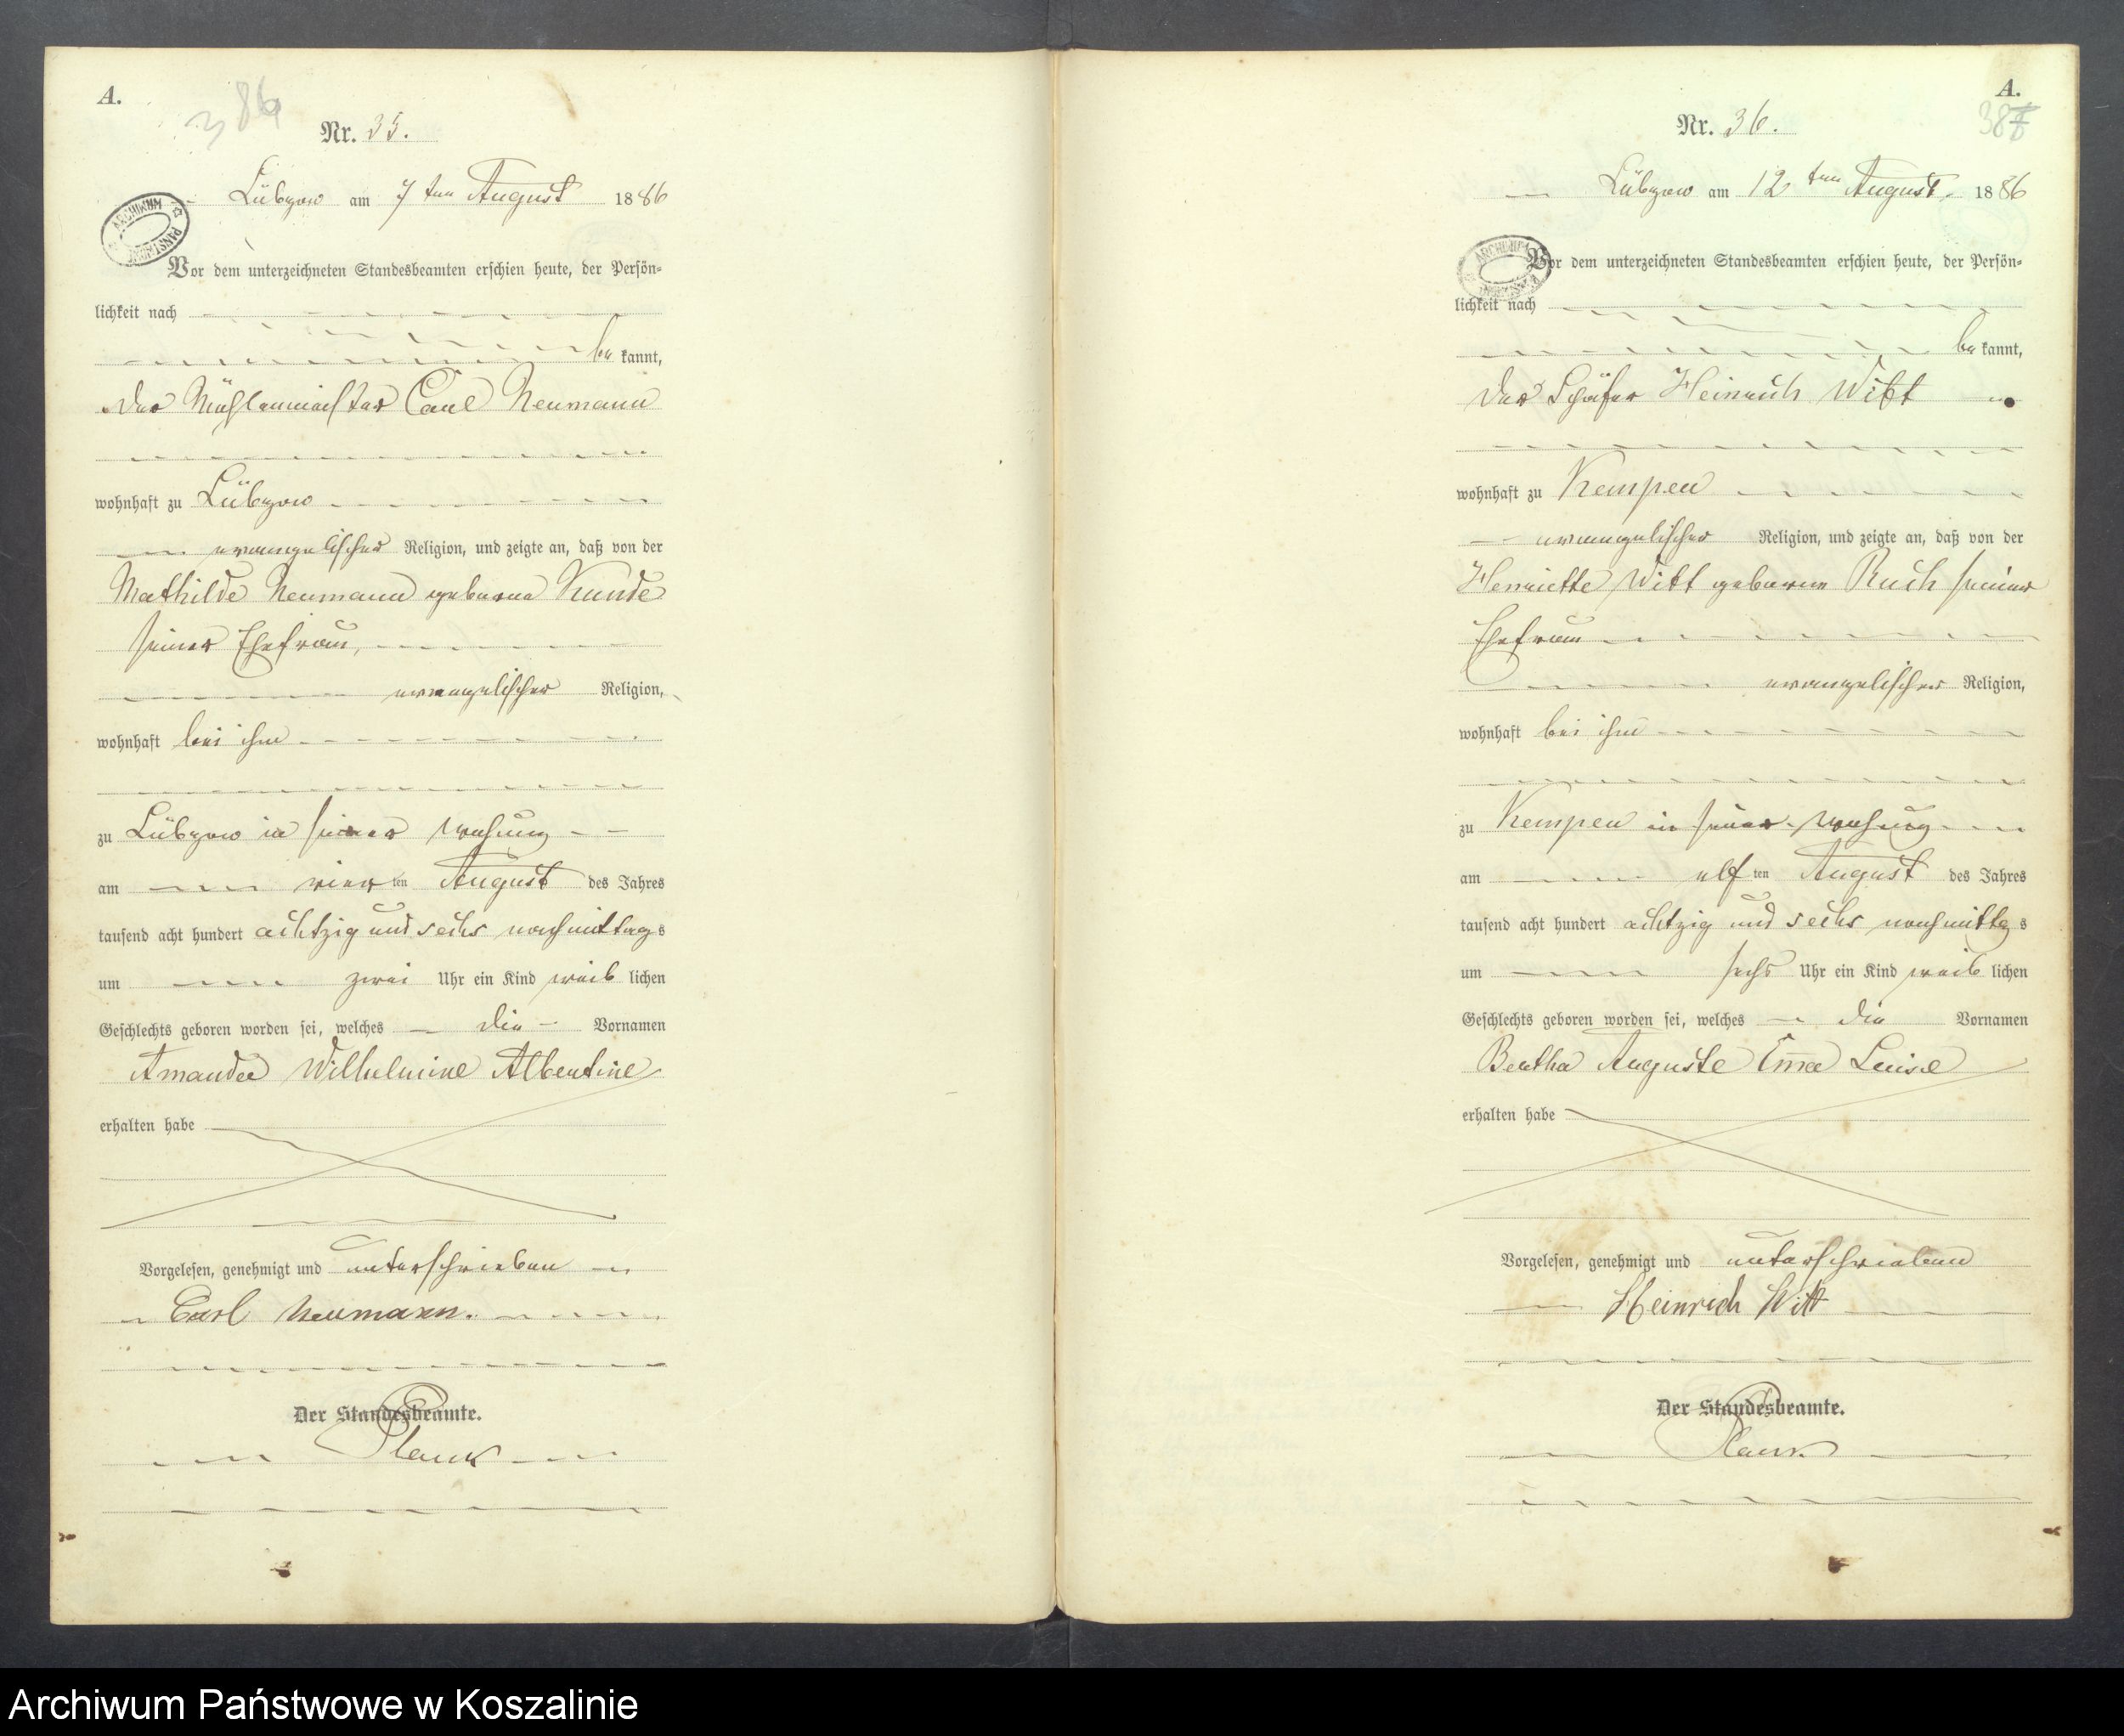 A.
386
Nr. 35.
Lübzow am 7ten August 1886
ARCHIWUM PAŃSTWOWE
Vor dem unterzeichneten Standesbeamten erschien heute, der Persön-
lichkeit nach
be kannt,
der Mühlenmeister Carl Neumann
wohnhaft zu Lübzow
evangelischer Religion, und zeigte an, daß von der
Mathilde Neumann geborne Kunde
seiner Ehefrau,
evangelischer Religion,
wohnhaft bei ihm
zu Lübzow in seiner Wohnung
am vier ten August des Jahres
tausend acht hundert achtzig und sechs nachmittag s
um zwei Uhr ein Kind weib lichen
Geschlechts geboren worden sei, welches die Vornamen
Amanda Wilhelmine Albertine
erhalten habe
Vorgelesen, genehmigt und unterschrieben
Carl Neumann.
Der Standesbeamte.
Planck
A.
Nr. 36.
Lübzow am 12ten August 1886
ARCHIWUM
Vor dem unterzeichneten Standesbeamten erschien heute, der Persön-
lichkeit nach
be kannt,
der Schäfer Heinrich Witt
wohnhaft zu Kempen
evangelischer Religion, und zeigte an, daß von der
Henriette Witt geborne Ruch seiner
Ehefrau
evangelischer Religion,
wohnhaft bei ihm
zu Kempen in seiner Wohnung
am elf ten August des Jahres
tausend acht hundert achtzig und sechs nachmittg s
um sechs Uhr ein Kind weib lichen
Geschlechts geboren worden sei, welches die Vornamen
Bertha Auguste Em̅a Luise
erhalten habe
Vorgelesen, genehmigt und unterschrieben
Heinrich Witt
Der Standesbeamte.
Planck
Archiwum Państwowe w Koszalinie